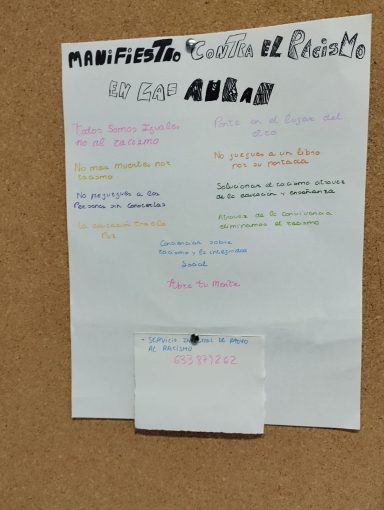 MANiFiESTO CONTRA EL RACiSMO
EN LAS AULAS
Todos Somos Iguales
no al racismo
Ponte en el lugar del
otro
No mas muertes por
racismo
No juegues a un libro
por su portada
No prejuzgues a las
Personas sin conocerlas
Solucionar el racismo atraves
de la educación y enseñanza
La educación trae la
Paz
Atraves de la convivencia
eliminamos el racismo
Conciencia sobre
racismo y la integridad
Social
Abre tu Mente
- SERVICIO DE APOYO
AL RACISMO
633 879262